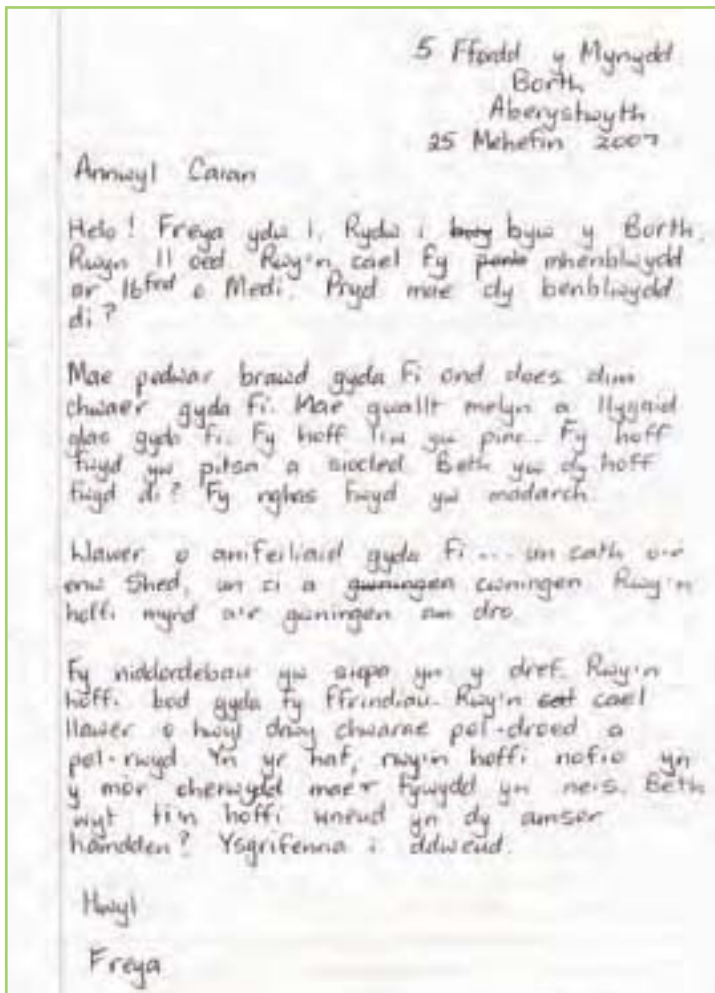 5 Ffordd y Mynydd
Borth
Aberystwyth
25 Mehefin 2007
Annwyl Caian
Helo! Freya ydw i. Rydw i byw y Borth.
Rwyn 11 oed. Rwy'n cael fy mhenblwydd
ar 16fed o Medi. Pryd mae dy benblwydd
di?
Mae pedwar brawd gyda fi ond does dim
chwaer gyda fi. Mae gwallt melyn a llygaid
glas gyda fi. Fy hoff liw yw pinc. Fy hoff
fwyd yw pitsa a siocled. Beth yw dy hoff
fwyd di? Fy nghas fwyd yw madarch.
Llawer o anifeiliaid gyda fi... un cath o'r
enw Shed, un ci a gwningen cwningen. Rwy'n
hoffi mynd a'r gwningen am dro.
Fy niddordebau yw siopa yn y dref. Rwy'n
hoffi bod gyda fy ffrindiau. Rwy'n cael
llawer o hwyl drwy chwarae pel-droed a
pel-rwyd. Yn yr haf, rwy'n hoffi nofio yn
y môr oherwydd mae'r tywydd yn neis. Beth
wyt ti'n hoffi wneud yn dy amser
hamdden? Ysgrifenna i ddweud.
Hwyl
Freya